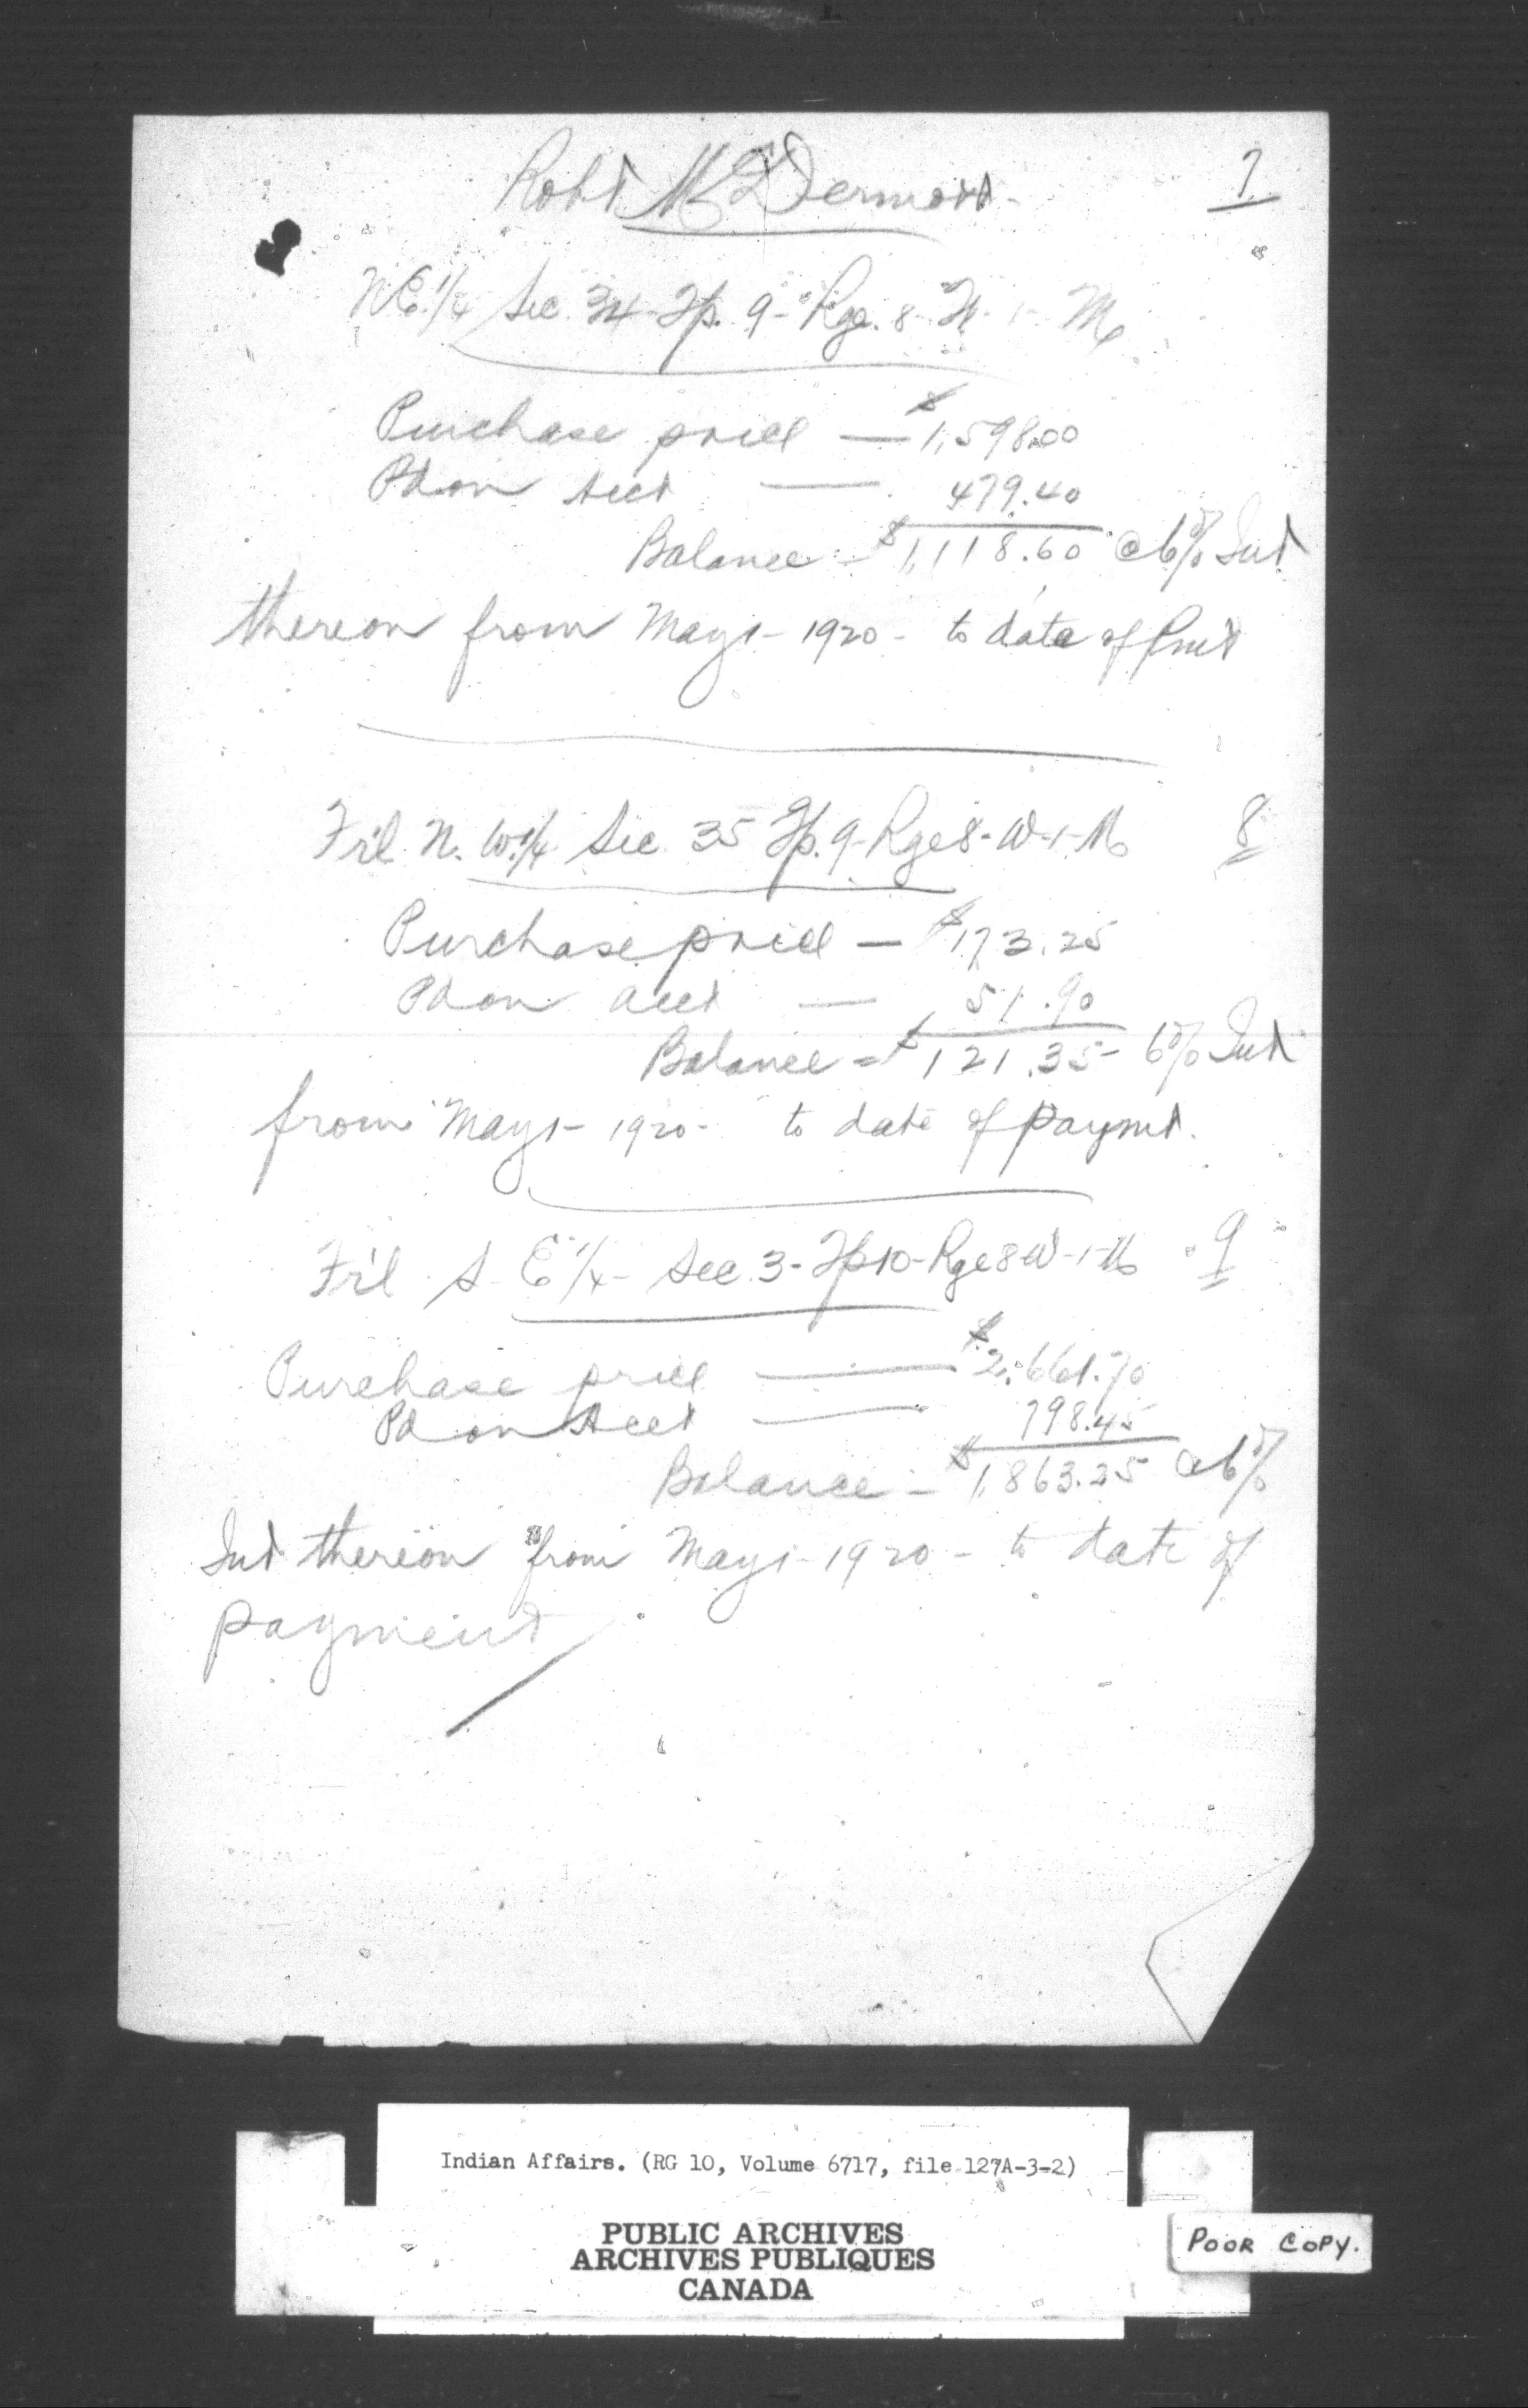 Robt McDermott - 7
N.E. 1/4 Sec. 34 - Tp. 9 - Rge. 8 - W - 1 - M
Purchase price — $1,598.00
Pd on Acct — 479.40
Balance - $1,118.60 @ 6% Int
thereon from May 1 - 1920 - to date of Pmt
Fr'l N.W. 1/4 Sec 35 Tp. 9 - Rge 8 - W - 1 - M 8
Purchase price — $173.25
Pd on acct — 51.90
Balance = $121.35 - 6% Int
from May 1 - 1920 - to date of paymt.
Fr'l S. E. 1/4 - Sec. 3 - Tp 10 - Rge 8 W - 1 - M 9
Purchase price — $2,661.70
Pd on Acct — 798.45
Balance - $1,863.25 @ 6%
Int thereon from May 1 - 1920 - to date of
payment
Indian Affairs. (RG 10, Volume 6717, file 127A-3-2)
PUBLIC ARCHIVES
ARCHIVES PUBLIQUES
CANADA
POOR COPY.